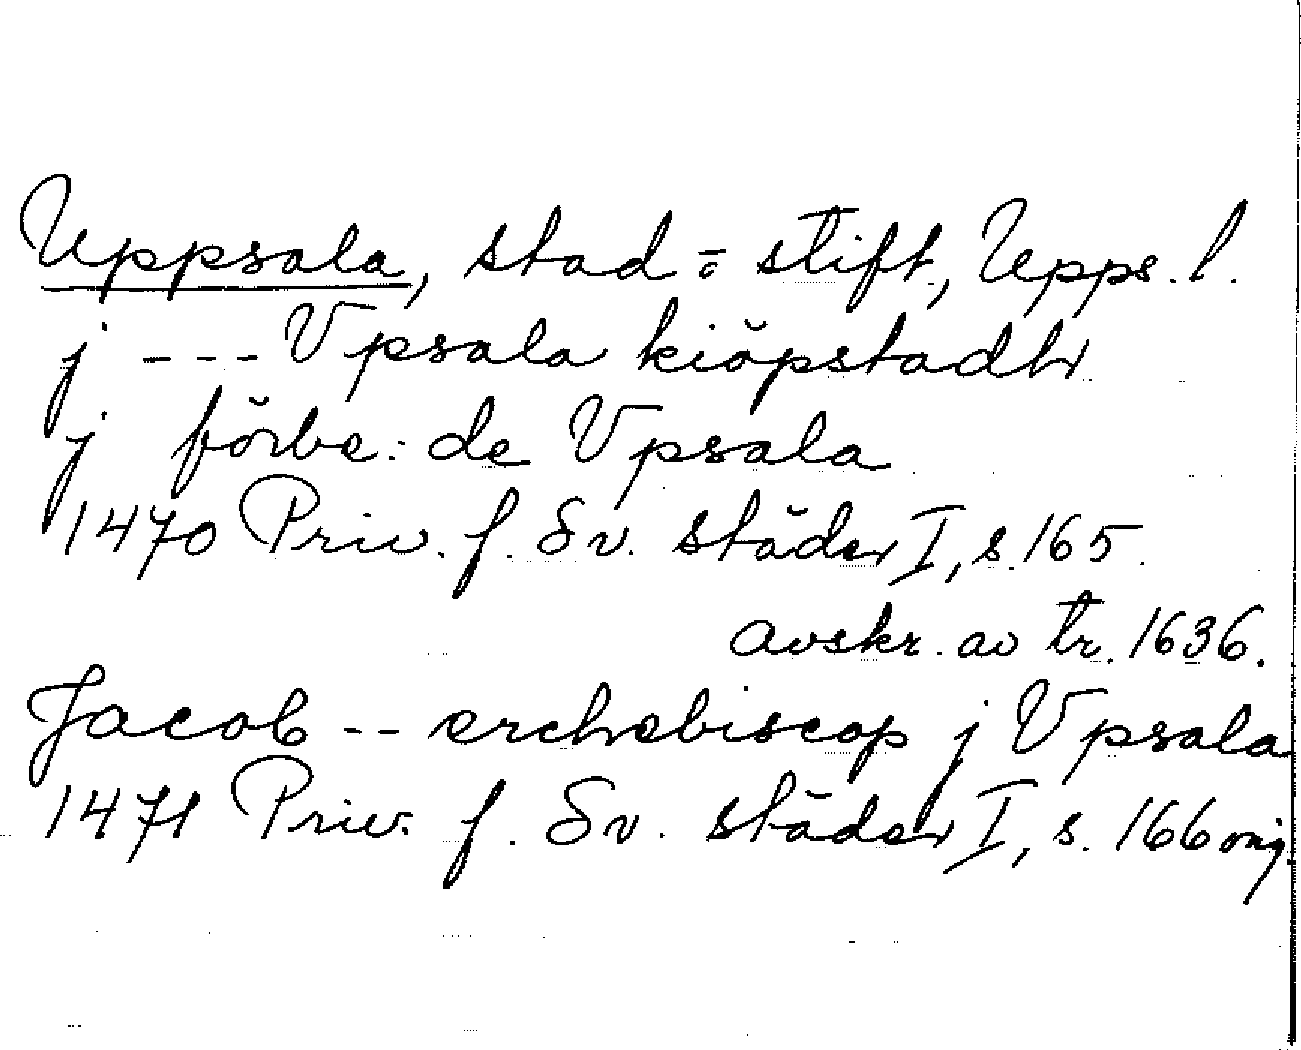 Uppsala, stad o. stift, Upps. l.
j --- Vpsala kiöpstadh
j förbe: de Vpsala
1470 Priv. f. Sv. städer I, s. 165.
avskr. av tr. 1636.
Jacob -- erchebiscop j Vpsala
1471 Priv. f. Sv. städer I, s. 166 orig.